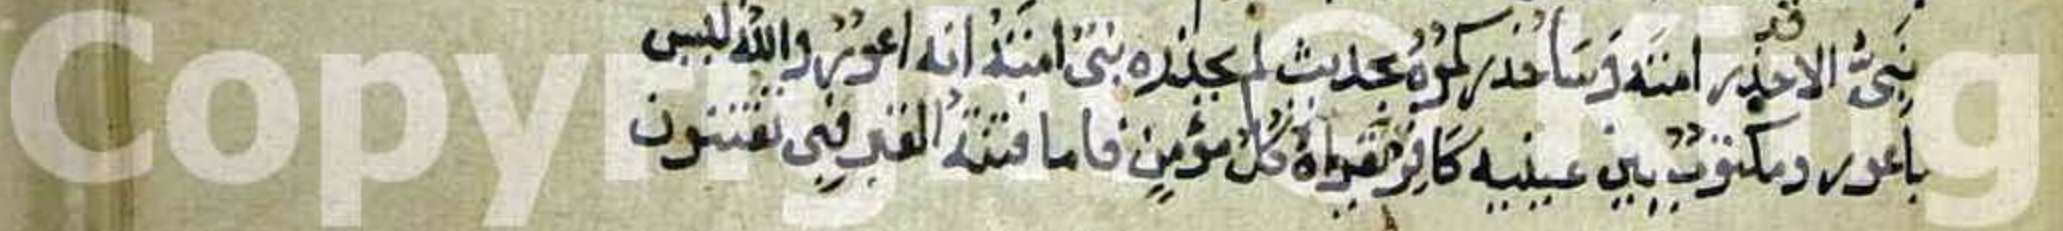 نَبِىٌّ الا قد حذر امته وَسَأُحذركموُهُ بحديث لم يحذره نبىٌ امتهُ انه اعورُ واللهُ ليس
باعور ومكتوبٌ بين عينيه كَافِرٌ يقرأهُ كُلُ مؤمِنٍ فاما فتنةُ القبر فبى تفتنون